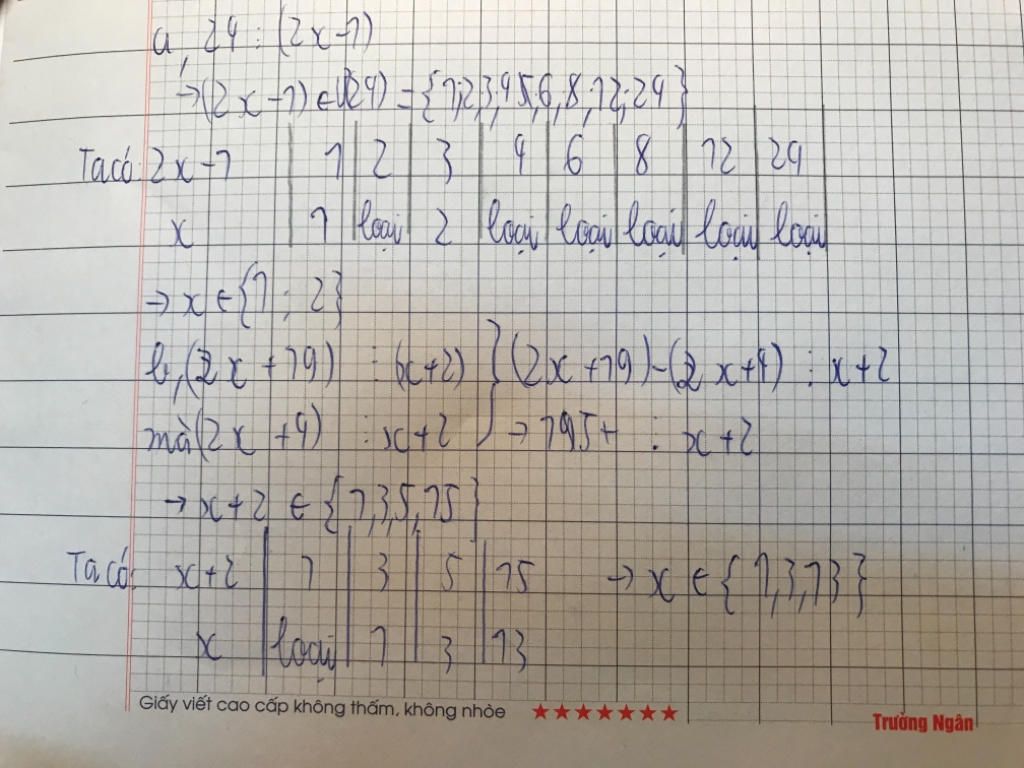 a, 24 ⋮ (2x-1)
→ (2x-1) ∈ Ư(24) = {1;2;3,4;6,8;12;24}
Ta có: 2x-1 | 1 | 2 | 3 | 4 | 6 | 8 | 12 | 24
x | 1 | loại | 2 | loại | loại | loại | loại | loại
→ x ∈ {1; 2}
b, (2x+19) ⋮ (x+2) } (2x+19)-(2x+4) ⋮ x+2
mà (2x+4) ⋮ x+2 → 15 ⋮ x+2
→ x+2 ∈ {1,3,5,15}
Ta có: x+2 | 1 | 3 | 5 | 15 → x ∈ {1,3,13}
x | loại | 1 | 3 | 13
Giấy viết cao cấp không thấm, không nhòe ★★★★★★★ Trường Ngân